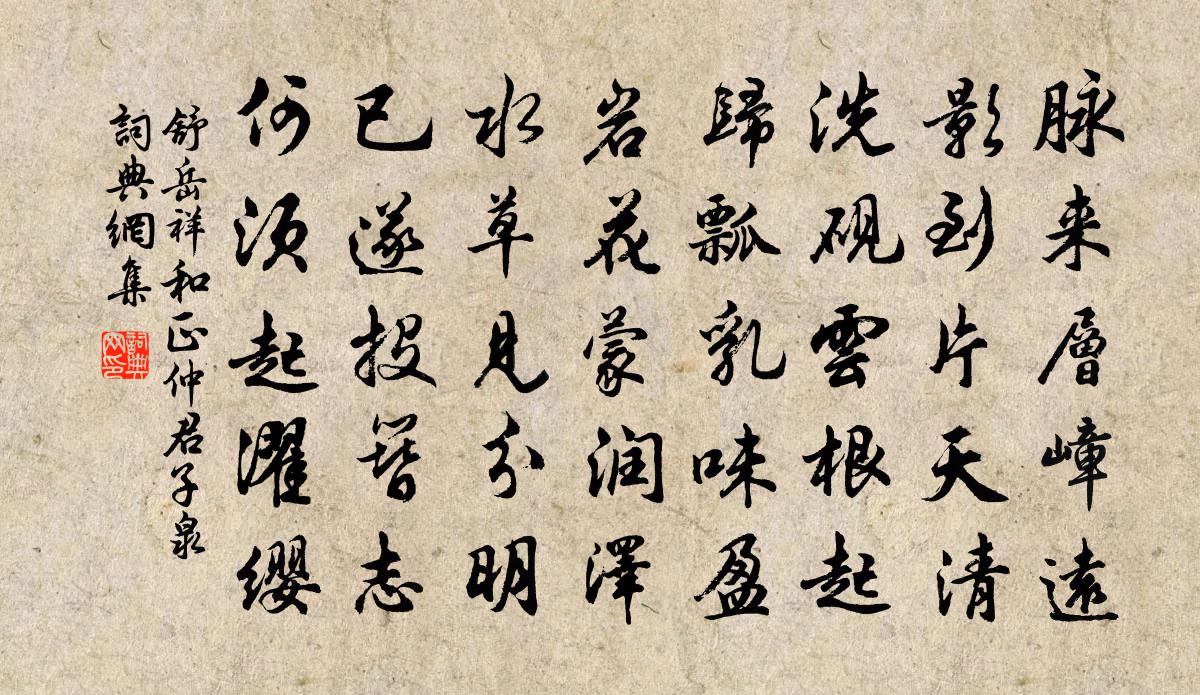 脉来層嶂遠
影到片天清
洗硯雲根起
歸瓢乳味盈
岩花蒙润澤
水草見分明
已遂投簪志
何须起濯缨
舒岳祥和正仲君子泉
詞典網集
詞典
网印